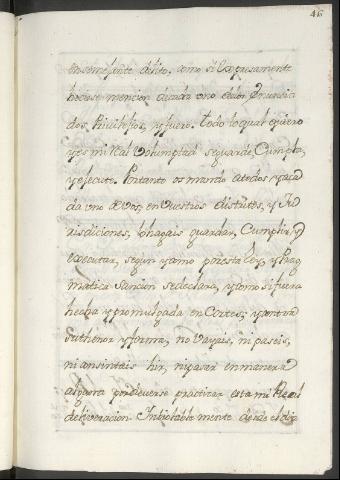 46
en semejante delito, como si Expresamente
hiciese mencion decada uno delos Pnuncia
dos, Privilejios, y fuero. Todo lo qual quiero
yes mi Real Voluntad seguarde, Cumpla,
y execute. Portanto os mando atodos ycaça
da uno devos, en Vuestros distritos, y Ju
risdiciones, lo hagais guardar, Cumplir, y
executar, segun ycomo por esta Ley, y Prag
matica Sancion sedeclara, ycomo si fuera
hecha y promulgada en Cortes; y contra
Suthenor y forma, no Vayais, ni paseis,
ni consintais hir, ni pasar en manera
alguna por deverse practicar esta mi Real
deliveracion Inviolable mente desde el dia